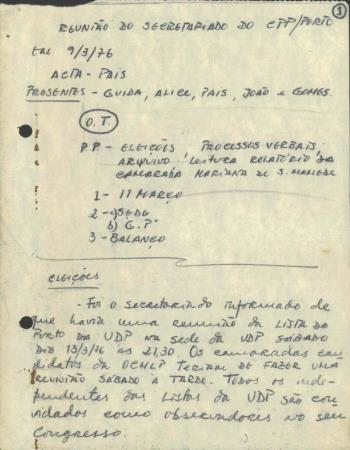 1
REUNIÃO DO SECRETARIADO DO CPP/PORTO
EM 9/3/76
ACTA - PAIS
PRESENTES - GUIDA, ALICE, PAIS, JOÃO e GOMES.
O.T.
P.P - ELEIÇÕES, PROCESSOS VERBAIS,
ARQUIVO, LEITURA RELATÓRIO DA
CAMARADA MARIANA DE S. MAMEDE
1 - 11 MARÇO
2 - a) SEDE
b) G.P.
3 - BALANÇO
ELEIÇÕES
- Foi o secretariado informado de
que havia uma reunião da LISTA DO
PORTO DA UDP NA sede da UDP SÁBADO
DIA 13/3/76 às 21,30. Os camaradas can-
didatos da OCMLP TERIAM DE FAZER UMA
REUNIÃO SÁBADO à TARDE. TODOS OS inde-
pendentes das listas da UDP são con-
vidados como observadores no seu
Congresso.